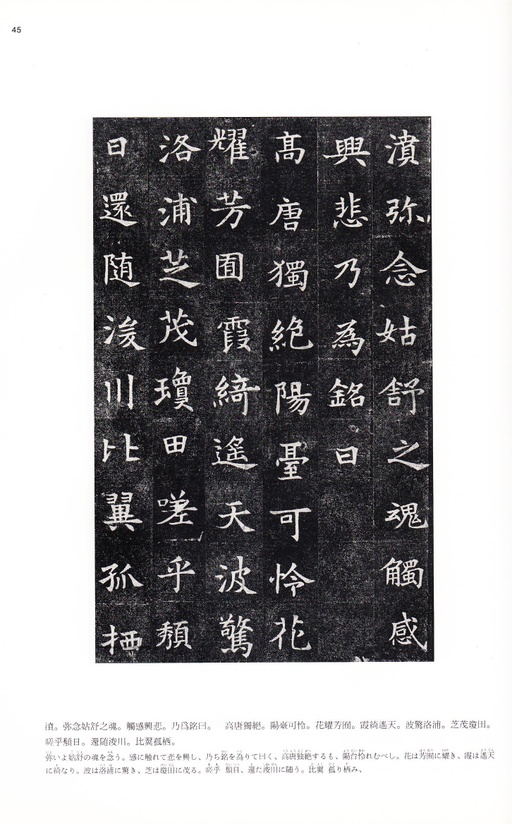 45
濆弥念姑舒之魂觸感
興悲乃為銘曰
髙唐獨絶陽臺可怜花
耀芳囿霞綺遙天波驚
洛浦芝茂瓊田嗟乎頽
日還随浚川比翼孤栖
濆。弥念姑舒之魂。觸感興悲。乃爲銘曰。　高唐獨絶。陽臺可怜。花耀芳囿。霞綺遙天。波驚洛浦。芝茂瓊田。
嗟乎頽日。還随浚川。比翼孤栖。
弥いよ姑舒の魂を念う。感に触れて悲を興し、乃ち銘を為りて曰く、高唐独絶するも、陽台怜れむべし。花は芳囿に耀き、霞は遙天
に綺なり。波は洛浦に驚き、芝は瓊田に茂る。嗟乎 頽日、還た浚川に随う。比翼 孤り栖み、